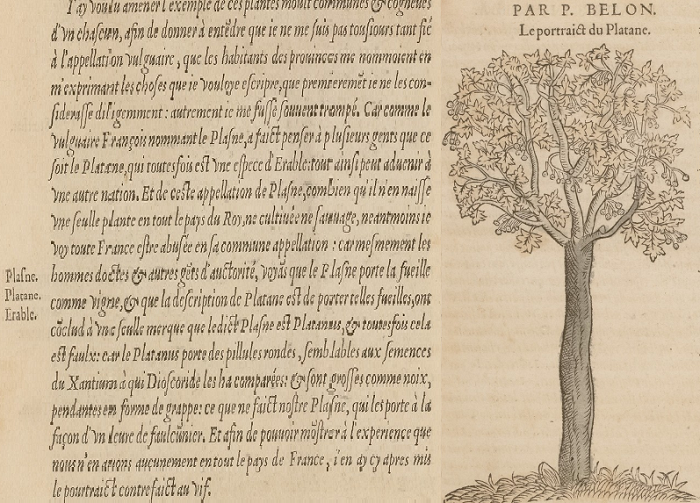 I'ay voulu amener l'exemple de ces plantes moult communes & cogneues
d'vn chascun, afin de donner à entẽdre que ie ne me suis pas tousiours tant fié
à l'appellation vulguaire, que les habitants des prouinces me nommoient en
m'exprimant les choses que ie vouloye escripre, que premieremẽt ie ne les con-
siderasse diligemment : autrement ie me fusse souuent trompé. Car comme le
vulguaire François nommant le Plasne, à faict penser à plusieurs gents que ce
soit le Platane, qui toutesfois est vne espece d'Erable: tout ainsi peut aduenir à
vne autre nation. Et de ceste appellation de Plasne, combien qu'il n'en naisse
vne seulle plante en tout le pays du Roy, ne cultiuée ne sauuage, neantmoins ie
voy toute France estre abusée en sa commune appellation : car mesmement les
hommes doctes & autres gẽts d'auctorité, voyãs que le Plasne porte la fueille
comme vigne, & que la description de Platane est de porter telles fueilles, ont
cõclud à vne seulle merque que ledict Plasne est Platanus, & toutesfois cela
est faulx: car le Platanus porte des pillules rondes, semblables aux semences
du Xantium à qui Dioscoride les ha comparées: & sont grosses comme noix,
pendantes en forme de grappe: ce que ne faict nostre Plasne, qui les porte à la
façon d'vn leure de faulcũnier. Et afin de pouuoir mõstrer à l'experience que
nous n'en auions aucunement en tout le pays de France, i'en ay cy apres mis
le pourtraict contrefaict au vif.
Plasne.
Platane.
Erable.
PAR P. BELON.
Le portraict du Platane.